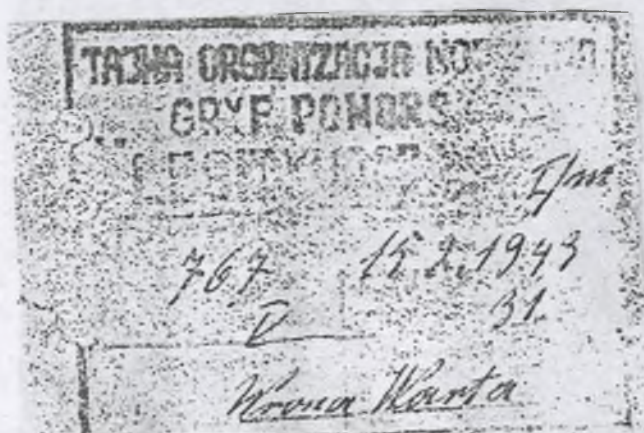 TAJNA ORGANIZACJA
GRYF POMORS
I/m
767 15.2.1943
V 31.
Wrona Marta